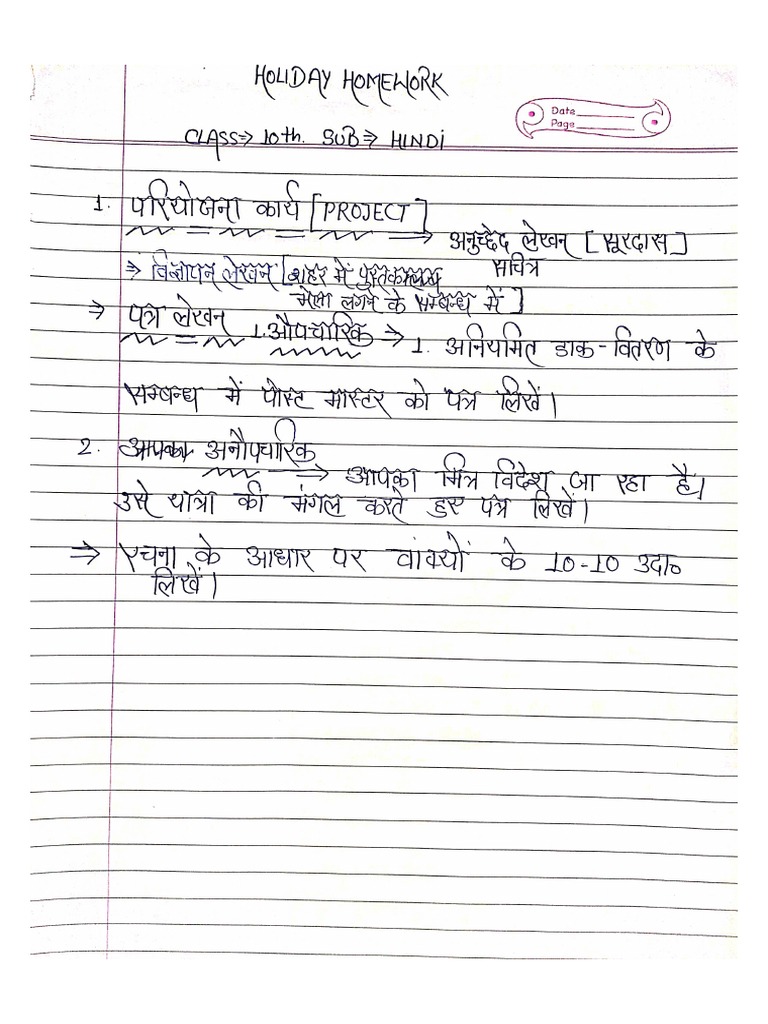 HOLIDAY HOMEWORK
Date
Page
CLASS⇒ 10th. SUB⇒ HINDI
1. परियोजना कार्य [PROJECT]
→ अनुच्छेद लेखन [सूरदास]
सचित्र
⇒ विज्ञापन लेखन [शहर में
मेला लगने के सम्बन्ध में]
⇒ पत्र लेखन 1. औपचारिक ⇒ 1. अनियमित डाक-वितरण के
सम्बन्ध में पोस्ट मास्टर को पत्र लिखें।
2. अनौपचारिक
⇒ आपका मित्र विदेश जा रहा हैं।
उसे यात्रा की मंगल करते हुए पत्र लिखें।
⇒ रचना के आधार पर वांक्यों के 10-10 उदा०
लिखें।